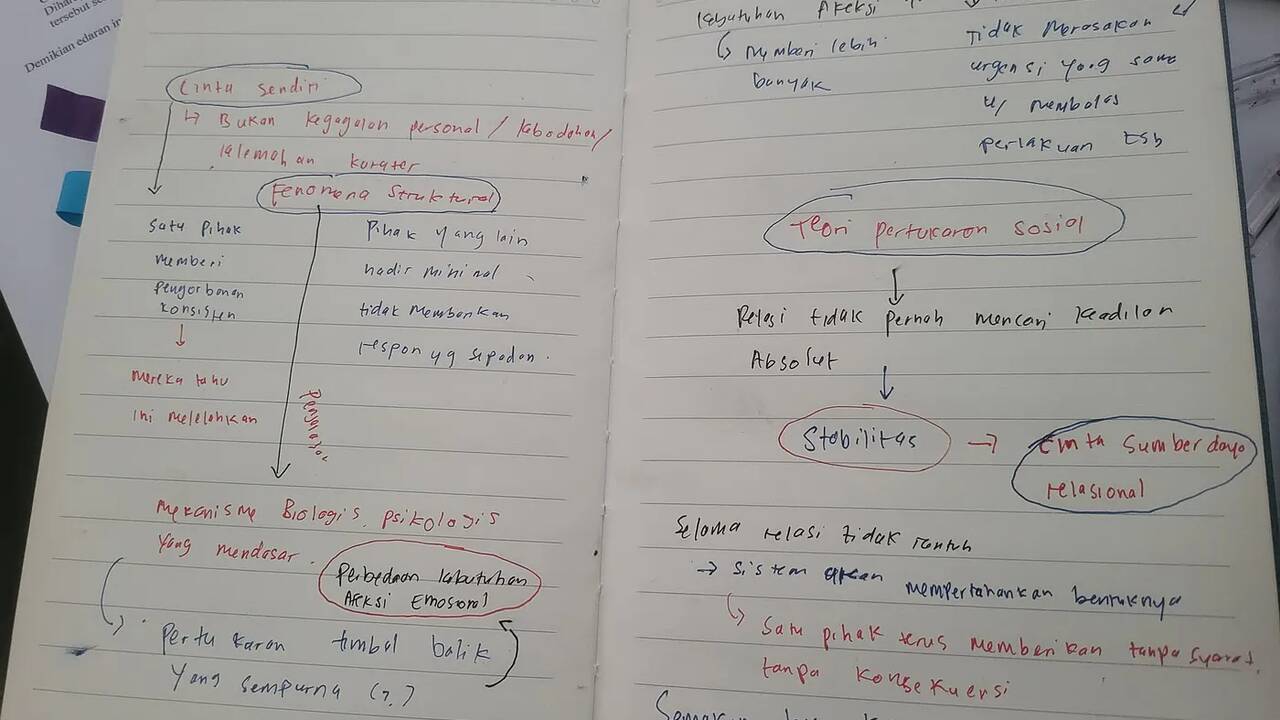 tersebut se
Demikian edaran in
Cinta sendiri
↳ Bukan kegagalan personal / kebodohan /
kelemahan karater
Fenomena Struktural
satu pihak
memberi
pengorbanan
konsisten
↓
mereka tahu
ini melelahkan
pihak yang lain
hadir minimal
tidak memberikan
respon yg sepadan.
Mekanisme Biologis, psikologis
yang mendasar.
Perbedaan kebutuhan
Afeksi Emosional
Pertukaran timbal balik
Yang sempurna (?)
kebutuhan Afeksi
↳ Memberi lebih
banyak
Tidak Merasakan
urgensi yang sama
u/ membalas
perlakuan tsb
Teori pertukaran sosial
↓
Relasi tidak pernah mencari keadilan
Absolut
↓
Stabilitas → Cinta sumber daya
relasional
Selama relasi tidak runtuh
→ sistem akan mempertahankan bentuknya
↳ Satu pihak terus memberikan tanpa syarat,
tanpa konsekuensi